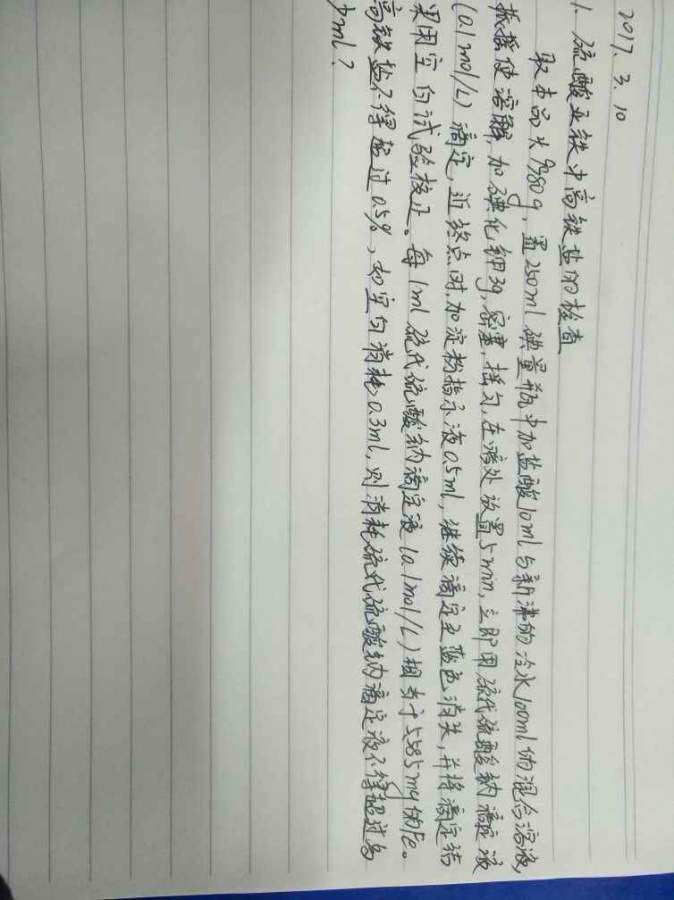 2017. 3. 10
1. 硫酸亚铁中高铁盐的检查
取本品 9.980g, 置250ml 碘量瓶中加盐酸10ml与新沸的冷水100ml的混合溶液,
振摇使溶解, 加碘化钾3g, 密塞, 摇匀, 在暗处放置5min, 立即用硫代硫酸钠滴定液
(0.1mol/L) 滴定, 近终点时, 加淀粉指示液0.5ml, 继续滴定至蓝色消失, 并将滴定结
果用空白试验校正。每1ml 硫代硫酸钠滴定液 (0.1mol/L) 相当于5.585mg的Fe。
高铁盐不得超过0.5%, 如空白消耗0.3ml, 则消耗硫代硫酸钠滴定液不得超过多
少ml?